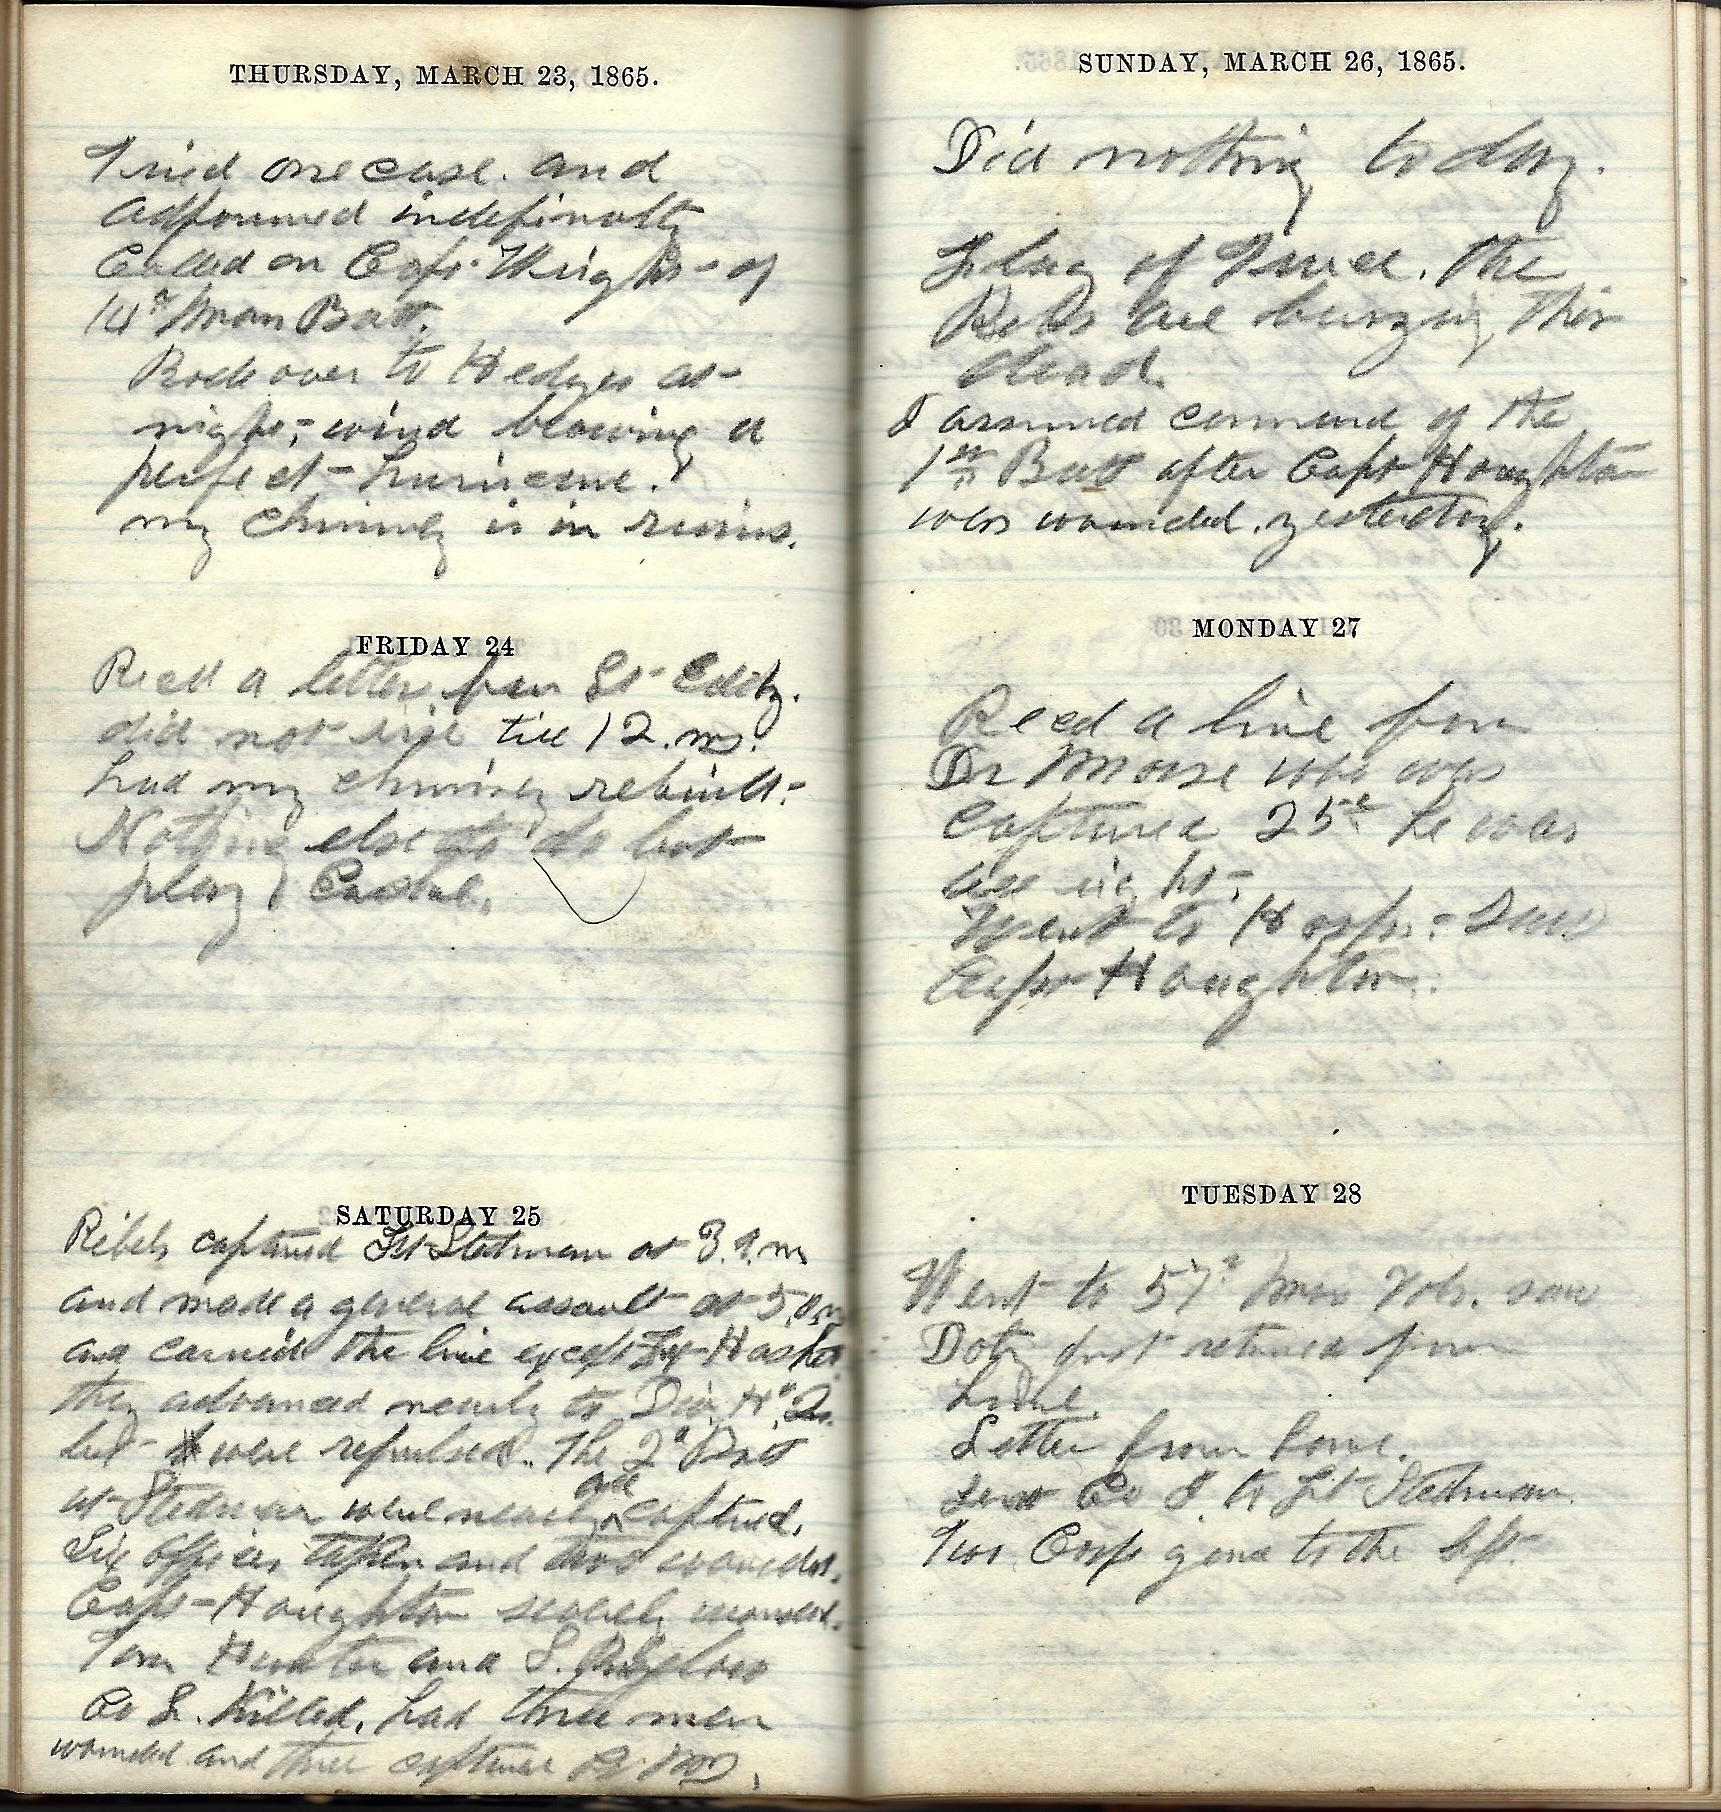 THURSDAY, MARCH 23, 1865.
Tried one case. and
adjourned indefinatly
Called on Capt. Wright - of
14th Mass Batt.
Rode over to Hedges at
night, - wind blowing a
perfect hurricane.
my chimney is in ruins.
FRIDAY 24
Recd a letter from Lt
did not rise till 12. m.
had my chimney rebuilt.
Nothing else to do but
play
SATURDAY 25
Rebels captured Ft Stedman at 3 a.m
and made a general assault at 5 a m
and carried the line except Ft Haskell
they advanced nearly to Div. Hd Qrs.
but were repulsed. The 2d Batt
at Stedman were nearly all captured.
Six officers taken and two wounded.
Capt Houghton severely wounded.
Tom Hunter and S. Bigelow
Co L. Killed. had three men
wounded and three captured
SUNDAY, MARCH 26, 1865.
Did nothing to day.
Flag of Truce. the
Rebs are burying their
dead.
I assumed command of the
1st Batt after Capt Houghton
was wounded. yesterday.
MONDAY 27
Recd a line from
Dr Morse who was
captured 25th he was
all right.
Went to Hosp. - saw
Capt Houghton.
TUESDAY 28
Went to 57th Mass Vols. saw
Doty just returned from
home.
Letter from home.
Sent Co to Ft Stedman.
Two Corps gone to the left.